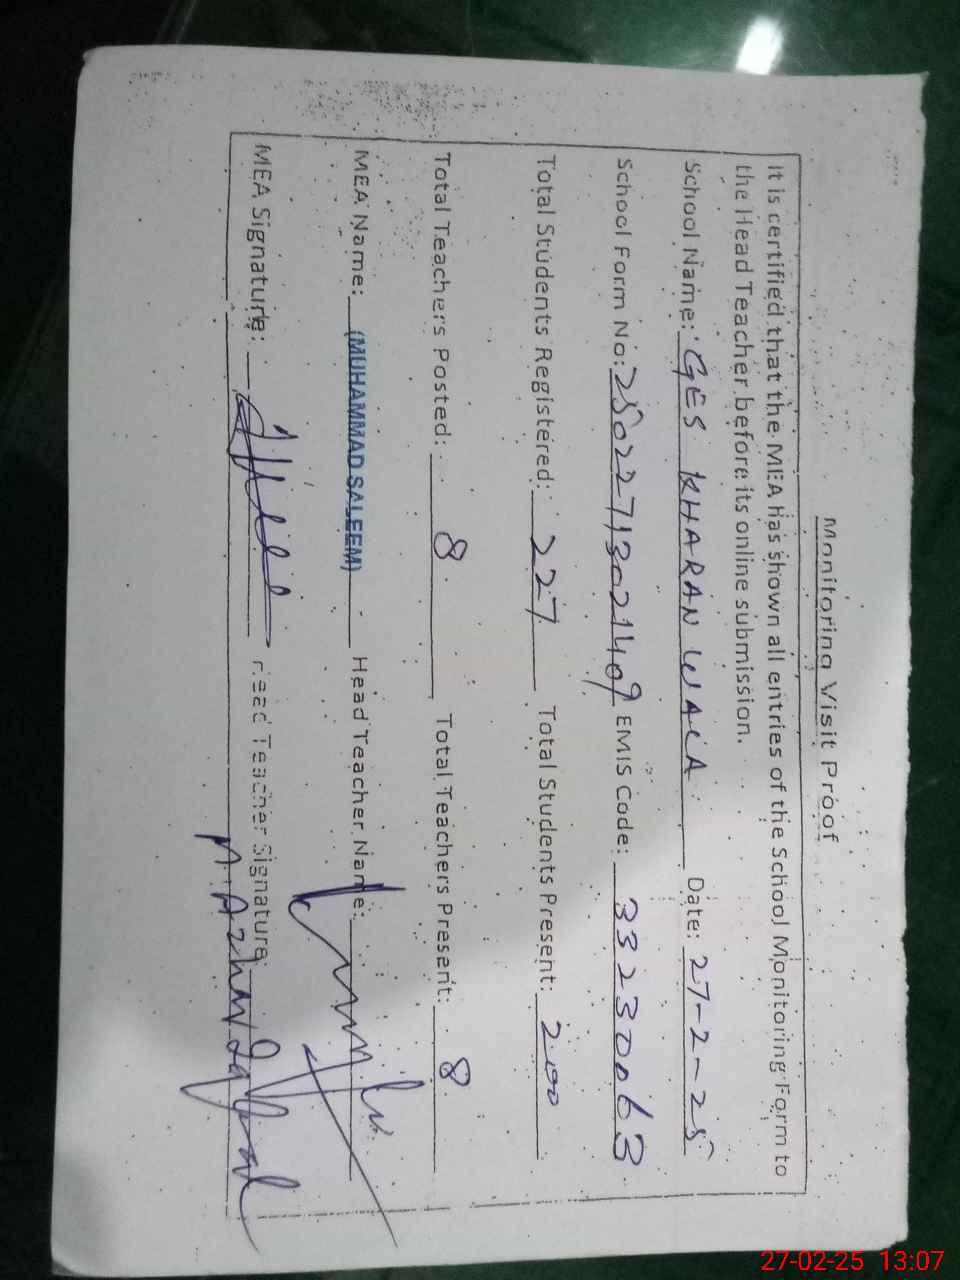 Monitoring Visit Proof
It is certified that the MEA has shown all entries of the School Monitoring Form to
the Head Teacher before its online submission.
School Name: GES KHARAN WALA Date: 27-2-25
School Form No: 25022713021409 EMIS Code: 33230063
Total Students Registered: 227 Total Students Present: 200
Total Teachers Posted: 8 Total Teachers Present: 8
MEA Name: (MUHAMMAD SALEEM) Head Teacher Name:
MEA Signature: Head Teacher Signature:
27-02-25 13:07